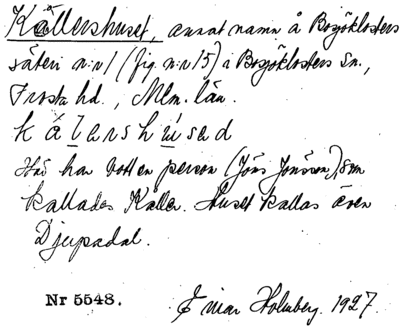 Källershuset, annat namn å Bosjöklosters
säteri n:r 1 (fig. n:r 15) i Bosjöklosters sn.,
Frosta hd., Mlm. län.
kälarshúsad
Här har bott en person (Jöns Jönsson), som
kallades Käller. Huset kallas även
Djupadal.
Nr 5548. Einar Holmberg. 1927.